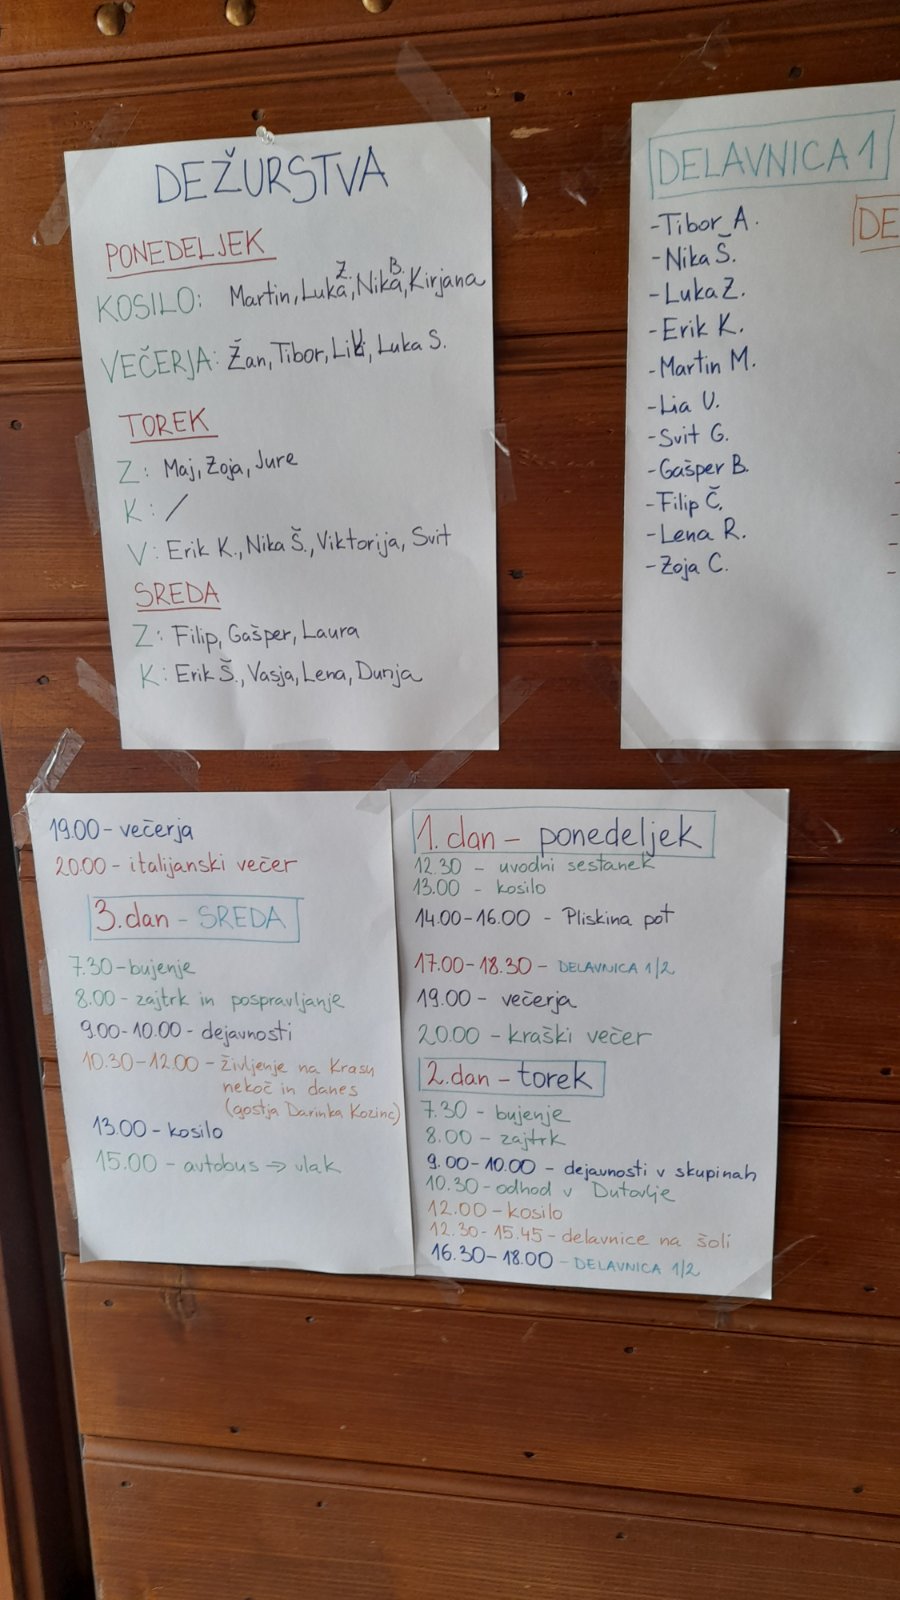 DEŽURSTVA
PONEDELJEK
KOSILO: Martin, Luka Z., Nika B., Kirjana
VEČERJA: Žan, Tibor, Luka S.
TOREK
Z: Maj, Zoja, Jure
K: /
V: Erik K., Nika Š., Viktorija, Svit
SREDA
Z: Filip, Gašper, Laura
K: Erik Š., Vasja, Lena, Dunja
DELAVNICA 1
DE
-Tibor A.
-Nika Š.
-Luka Z.
-Erik K.
-Martin M.
-Lia U.
-Svit G.
-Gašper B.
-Filip Č.
-Lena R.
-Zoja C.
19.00 - večerja
20.00 - italijanski večer
3. dan - SREDA
7.30 - bujenje
8.00 - zajtrk in pospravljanje
9.00-10.00 - dejavnosti
10.30-12.00 - življenje na Krasu
nekoč in danes
(gostja Darinka Kozinc)
13.00 - kosilo
15.00 - avtobus → vlak
1. dan - ponedeljek
12.30 - uvodni sestanek
13.00 - kosilo
14.00-16.00 - Pliskina pot
17.00-18.30 - DELAVNICA 1/2
19.00 - večerja
20.00 - kraški večer
2. dan - torek
7.30 - bujenje
8.00 - zajtrk
9.00-10.00 - dejavnosti v skupinah
10.30 - odhod v Dutovlje
12.00 - kosilo
12.30-15.45 - delavnice na šoli
16.30-18.00 - DELAVNICA 1/2